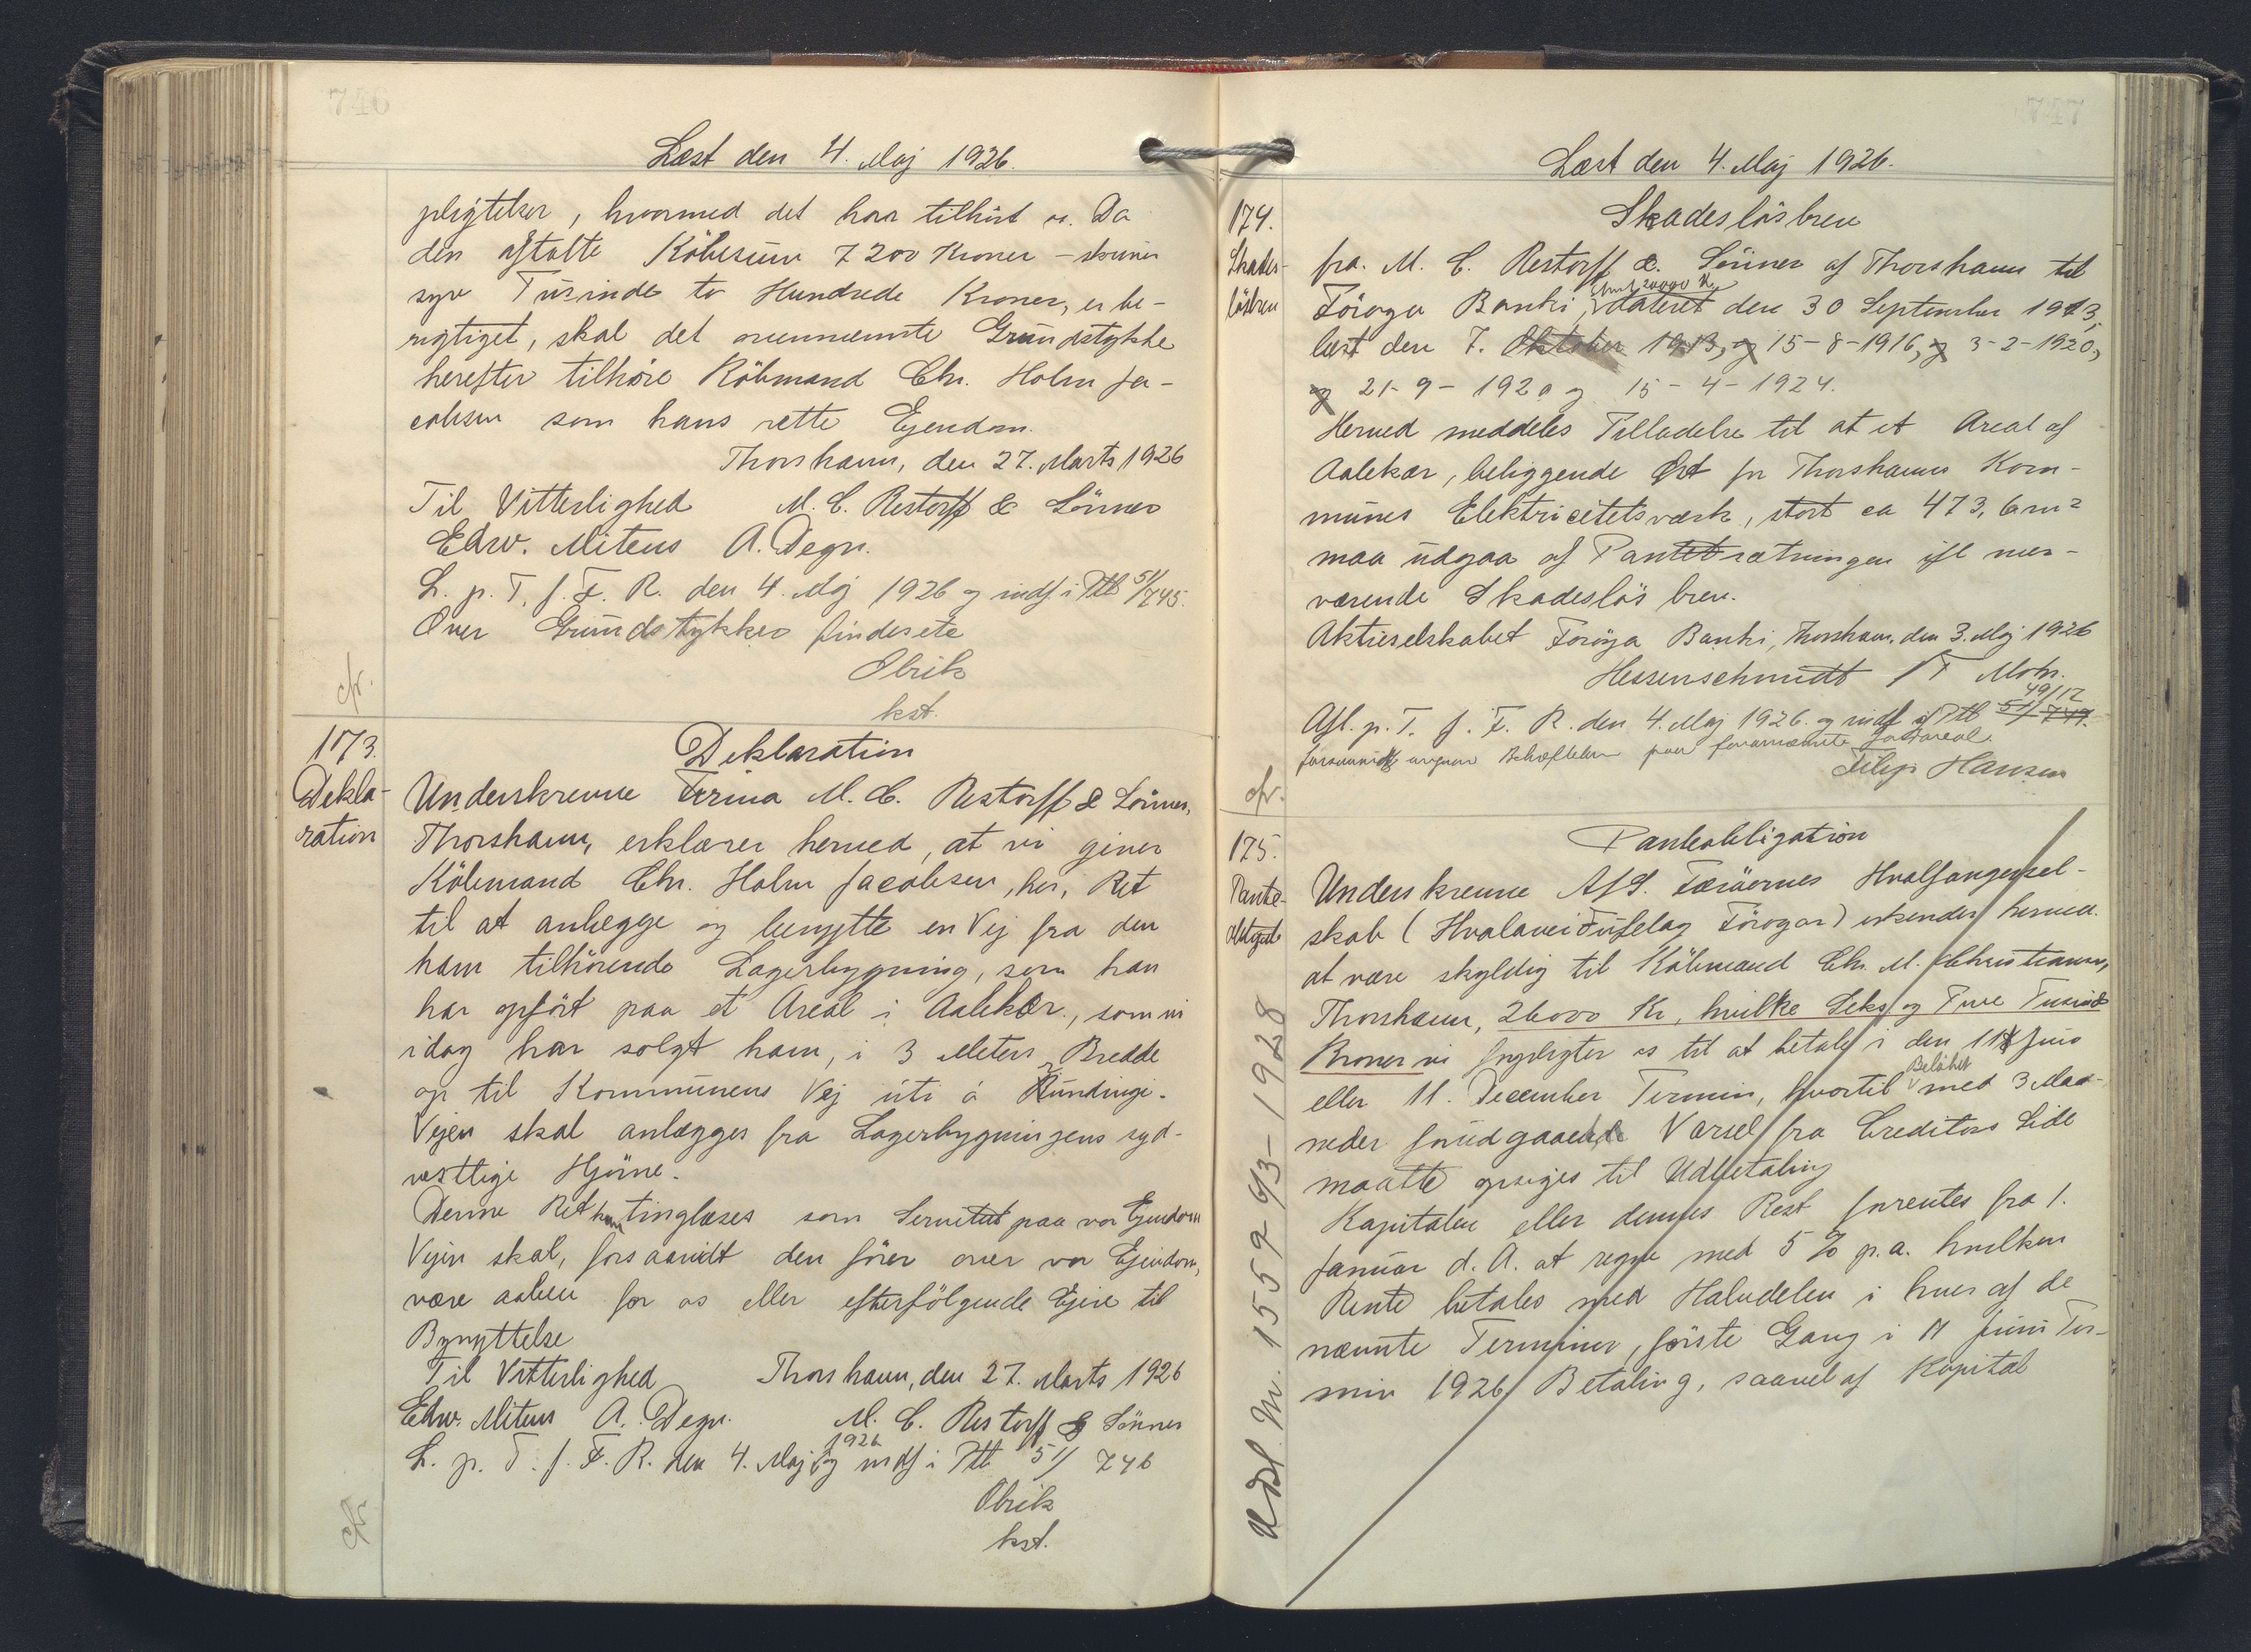 746
Læst den 4. Maj 1926.
pligtelser, hvormed det har tilhört os. Da
den aftalte Köbesum 7200 Kroner – skriver
syv Tusinde to Hundrede Kroner, er be-
rigtiget, skal det ovennævnte Grundstykke
herefter tilhöre Köbmand Chr. Holm Ja-
cobsen som hans rette Ejendom.
Thorshavn, den 27. Marts 1926
Til Vitterlighed M. C. Restorff & Sönner
Edw. Mitens A. Degn.
L. p. T. f. F. R. den 4. Maj 1926 og indf. i Ptb 51/745.
Over Grundstykker findes etc
Olrik
kst.
cfr.
173.
Dekla-
ration
Deklaration
Underskrevne Firma M. C. Restorff & Sönner,
Thorshavn, erklærer herved, at vi giver
Köbmand Chr. Holm Jacobsen, her, Ret
til at anlægge og benytte en Vej fra den
ham tilhörende Lagerbygning, som han
har opfört paa et Areal i Aalekær, som vi
idag har solgt ham, i 3 Meters Bredde
op til Kommunens Vej úti á Rundingi.
Vejen skal anlægges fra Lagerbygningens syd-
vestlige Hjörne.
Denne Ret kan tinglæses som Servitut paa vor Ejendom
Vejen skal, forsaavidt den förer over vor Ejendom,
være aaben for os eller efterfölgende Ejere til
Bynyttelse
Til Vitterlighed Thorshavn, den 27. Marts 1926
Edw. Mitens A. Degn. M. C. Restorff & Sönner
L. p. T. f. F. R. den 4. Maj 1926 og indf i Ptb 51/746
Olrik
kst.
cfr.
747
Læst den 4. Maj 1926.
174.
Skades-
lösbrev
Skadeslösbrev
fra M. C. Restorff & Sönner af Thorshavn til
Föroya Banki, dateret den 30 September 1913,
læst den 7. Oktober 1913, og 15-8-1916, og 3-2-1920,
og 21-9-1920 og 15-4-1924.
Herved meddeles Tilladelse til at et Areal af
Aalekær, beliggende Öst for Thorshavns Kom-
munes Elektricitetsværk, stort ca 473,6 m²
maa udgaa af Pantsætningen ifl nær-
værende Skadeslös brev.
Aktieselskabet Föroya Banki, Thorshavn, den 3. Maj 1926
Hessenschmidt / T Mohr.
Afl. p. T. f. F. R. den 4. Maj 1926. og indf i Ptb 51/749. 49/12
forsaavidt angaar Behæftelsen paa foranævnte Jordareal.
Filip Hansen
cfr.
175.
Pante-
obligat
Panteobligation
Underskrevne A/S. Færöernes Hvalfangersel-
skab (Hvalaveidufelag Föroyar) erkender herved
at være skyldig til Köbmand Chr. M. Christiansen,
Thorshavn, 26000 Kr, hvilke Seks og Tyve Tusinde
Kroner vi forpligter os til at betale i den 11te Juni
eller 11. December Termin, hvortil Belöbet med 3 Maa-
neder forudgaaende Varsel fra Creditors Side
maatte opsiges til Udbetaling
Kapitalen eller dennes Rest forrentes fra 1.
Januar d. A. at regne med 5 % p. a. hvilken
Rente betales med Halvdelen i hver af de
nævnte Terminer, förste Gang i 11 Juni Ter-
min 1926. Betaling, saavel af Kapital
Udsl. Nr. 1559 9/3-1928